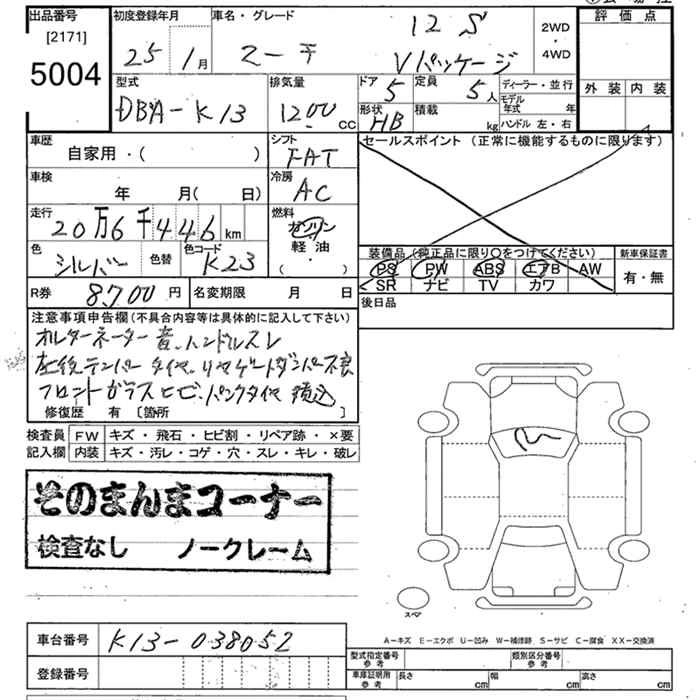 出品番号
[2171]
5004
初度登録年月
25 1月
車名・グレード
マーチ
12S
Vパッケージ
2WD
・
4WD
評価点
外装 内装
型式
DBA-K13
排気量
1200 CC
ドア 5
定員 5人
形状 HB
積載 kg
ディーラー・並行
モデル年式 年
ハンドル 左・右
車歴
自家用・( )
シフト
FAT
セールスポイント (正常に機能するものに限ります)
車検
年 月( 日)
冷房
AC
走行
20万6千446km
燃料
ガソリン
軽油
・
( )
色
シルバー
色替
色コード
K23
装備品(純正品に限り○をつけてください)
PS PW ABS エアB AW
SR ナビ TV カワ
新車保証書
有・無
R券 8700円
名変期限 月 日
後日品
注意事項申告欄(不具合内容等は具体的に記入して下さい)
オルターネーター音、ハンドルスレ
左後テンパータイヤ、リヤゲートダンパー不良
フロントガラスヒビ、パンクタイヤ積込
修復歴 有 〔箇所 〕
検査員記入欄
FW キズ・飛石・ヒビ割・リペア跡・×要
内装 キズ・汚レ・コゲ・穴・スレ・キレ・破レ
そのまんまコーナー
検査なし ノークレーム
スペア
A-キズ E-エクボ U-凹み W-補修跡 S-サビ C-腐食 XX-交換済
車台番号 K13-038052
登録番号
型式指定番号 参考
類別区分番号 参考
車庫証明用 参考
長さ cm 幅 cm 高さ cm